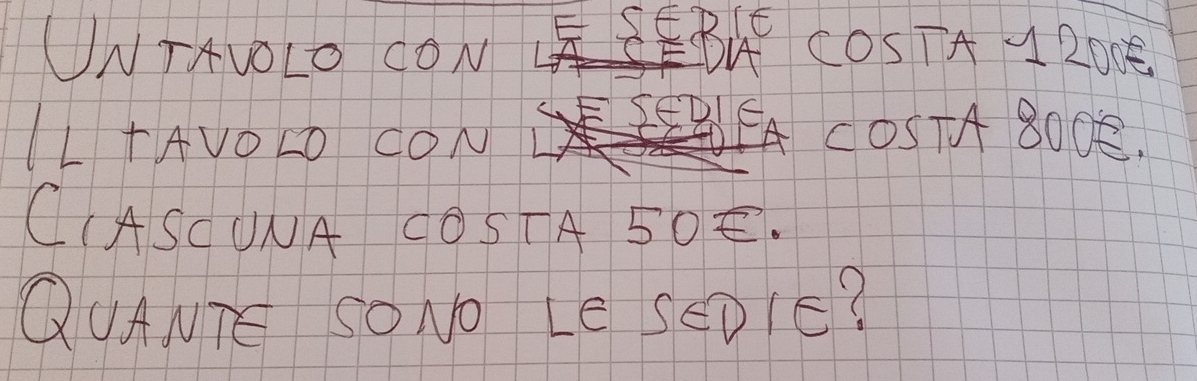 UN TAVOLO CON LE SEDIE COSTA 1200€.
IL TAVOLO CON LE SEDIE COSTA 800€.
CIASCUNA COSTA 50€.
QUANTE SONO LE SEDIE?